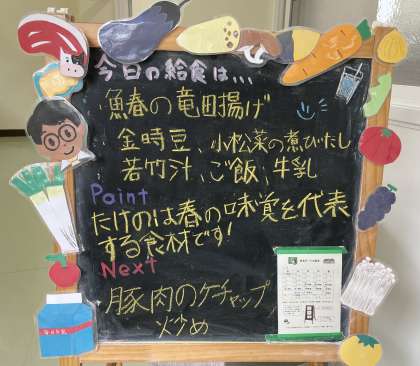 今日の給食は...
魚春の竜田揚げ
金時豆、小松菜の煮びたし
若竹汁、ご飯、牛乳
Point
たけのは春の味覚を代表
する食材です!
Next
豚肉のケチャップ
炒め